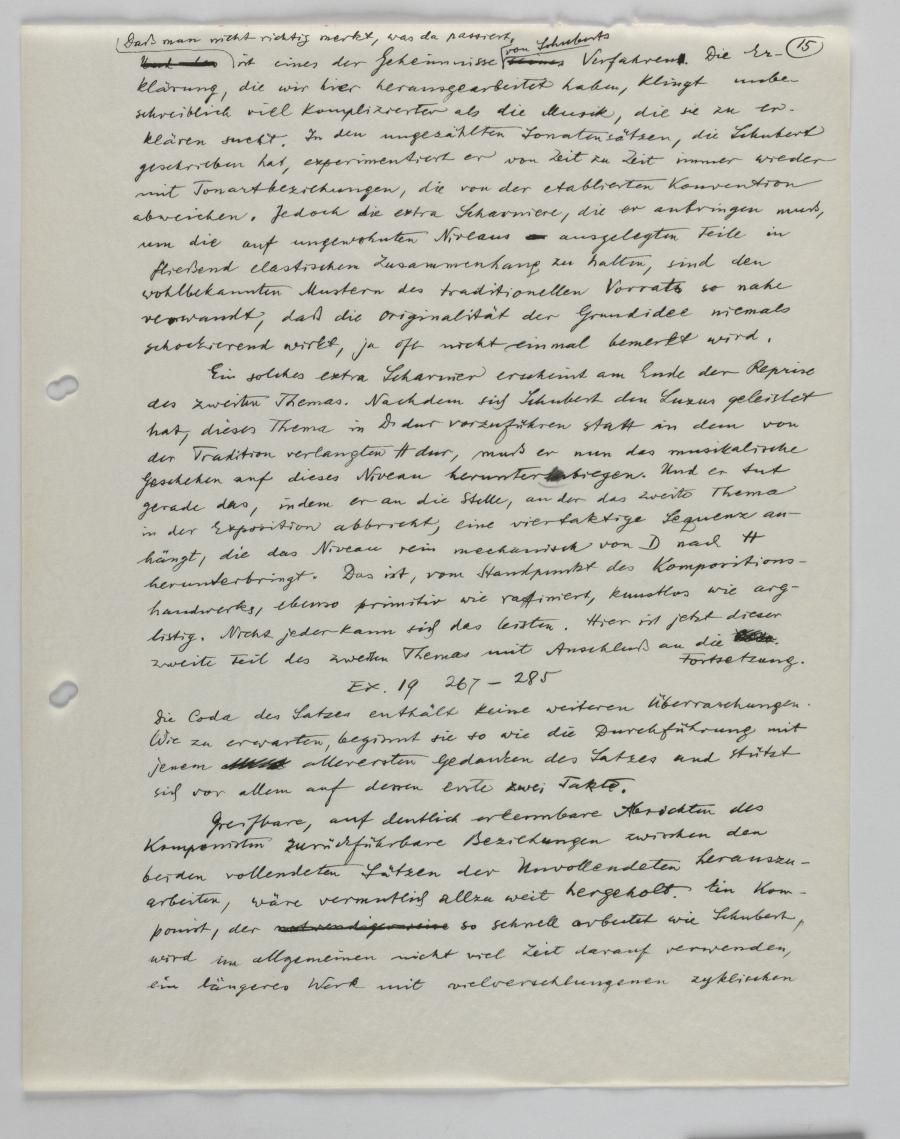 Daß man nicht richtig merkt, was da passiert,
15
ist eines der Geheimnisse von Schuberts Verfahren. Die Er-
klärung, die wir hier herausgearbeitet haben, klingt unbe-
schreiblich viel komplizierter als die Musik, die sie zu er-
klären sucht. In den ungezählten Sonatensätzen, die Schubert
geschrieben hat, experimentiert er von Zeit zu Zeit immer wieder
mit Tonartbeziehungen, die von der etablierten Konvention
abweichen. Jedoch die extra Scharniere, die er anbringen muß,
um die auf ungewohnten Niveaus ausgelegten Teile in
fließend elastischem Zusammenhang zu halten, sind den
wohlbekannten Mustern des traditionellen Vorrats so nahe
verwandt, daß die Originalität der Grundidee niemals
schockierend wirkt, ja oft nicht einmal bemerkt wird.
Ein solches extra Scharnier erscheint am Ende der Reprise
des zweiten Themas. Nachdem sich Schubert den Luxus geleistet
hat, dieses Thema in D dur vorzuführen statt in dem von
der Tradition verlangten H dur, muß er nun das musikalische
Geschehen auf dieses Niveau herunterbiegen. Und er tut
gerade das, indem er an die Stelle, an der das zweite Thema
in der Exposition abbricht, eine viertaktige Sequenz an-
hängt, die das Niveau rein mechanisch von D nach H
herunterbringt. Das ist, vom Standpunkt des Kompositions-
handwerks, ebenso primitiv wie raffiniert, kunstlos wie arg-
listig. Nicht jeder kann sich das leisten. Hier ist jetzt dieser
zweite Teil des zweiten Themas mit Anschluß an die
Fortsetzung.
Ex. 19 267 – 285
Die Coda des Satzes enthält keine weiteren Überraschungen.
Wie zu erwarten, beginnt sie so wie die Durchführung mit
jenem allerersten Gedanken des Satzes und stützt
sich vor allem auf dessen erste zwei Takte.
Greifbare, auf deutlich erkennbare Absichten des
Komponisten zurückführbare Beziehungen zwischen den
beiden vollendeten Sätzen der Unvollendeten herauszu-
arbeiten, wäre vermutlich allzu weit hergeholt. Ein Kom-
ponist, der notwendigerweise so schnell arbeitet wie Schubert,
wird im allgemeinen nicht viel Zeit darauf verwenden,
ein längeres Werk mit vielverschlungenen zyklischen